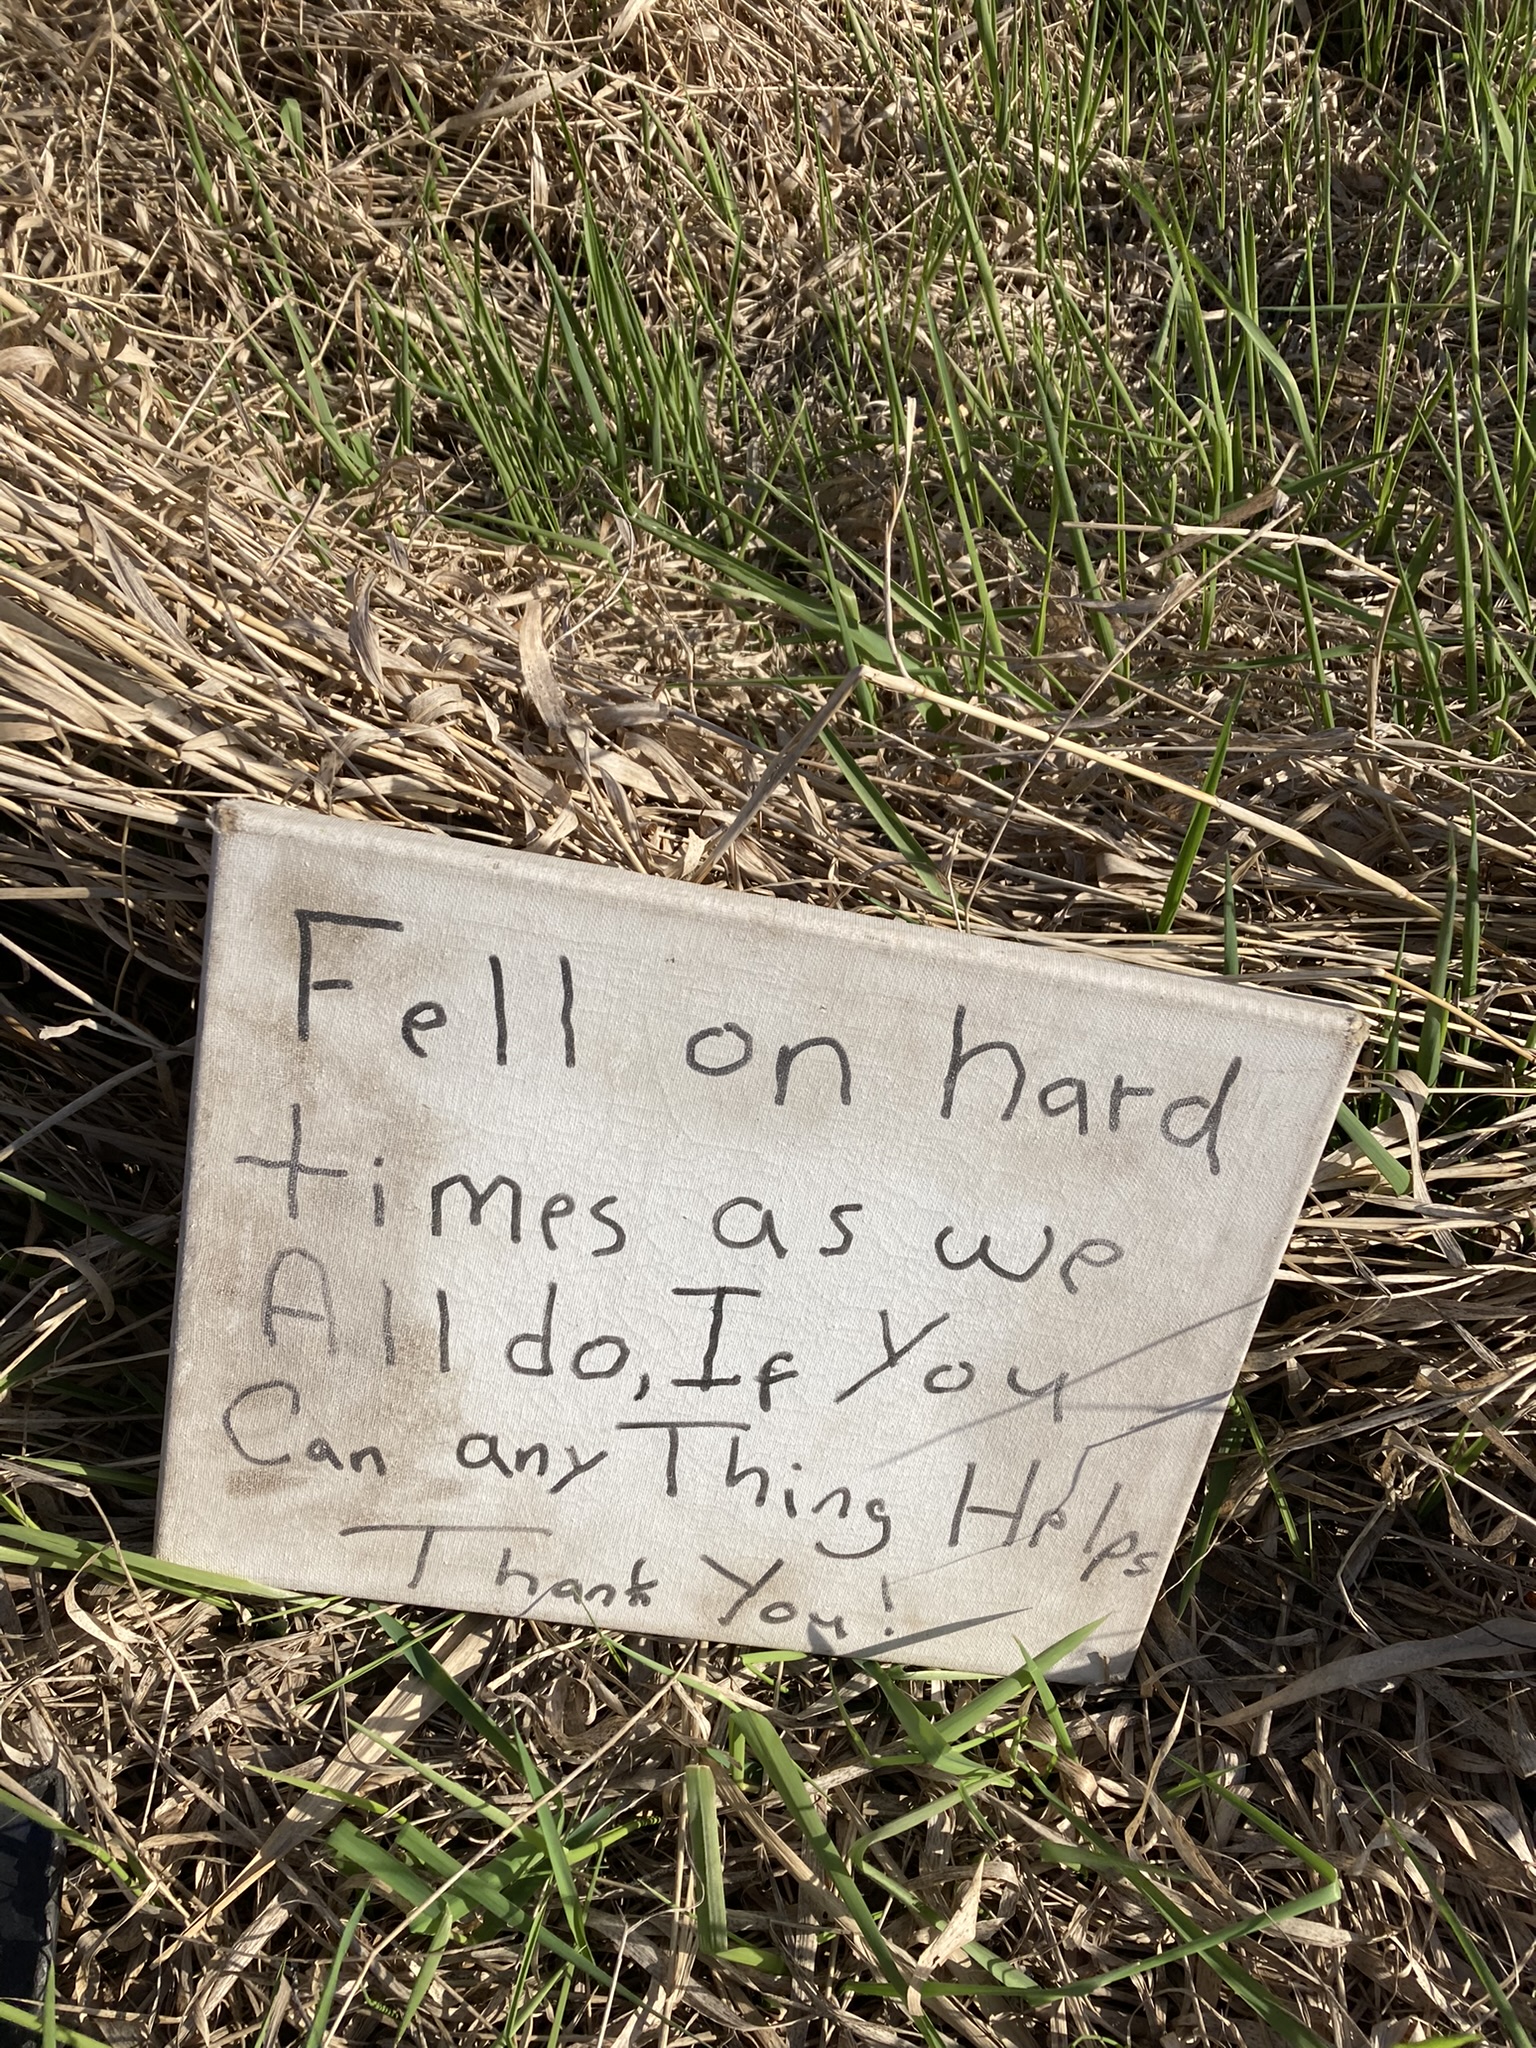 Fell on hard
times as we
All do, If You
Can anyThing Helps
Thank You!